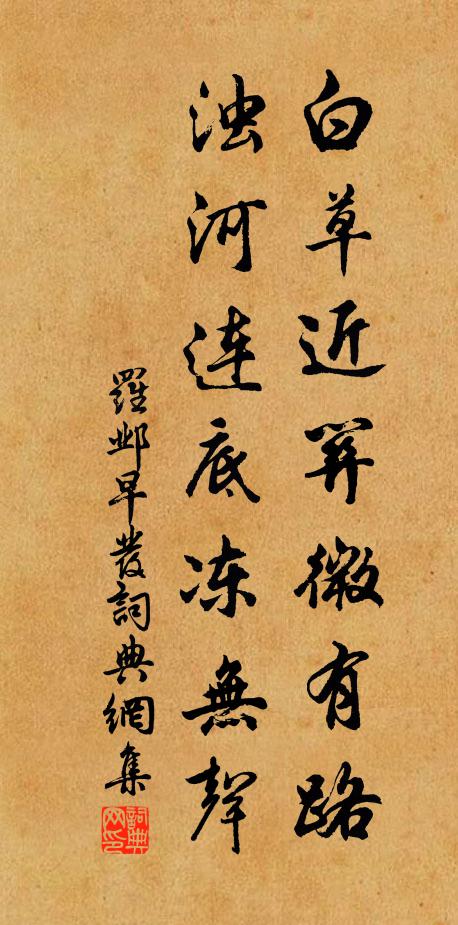 白草近關微有路
浊河連底冻無聲
羅邺早發詞典網集
詞典网印